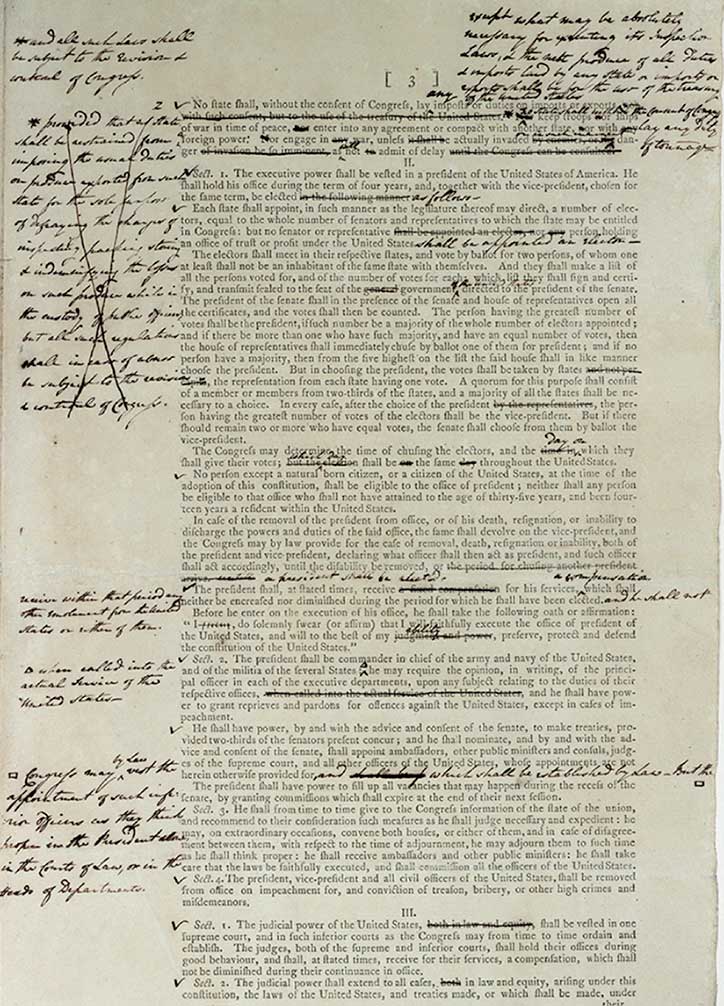 except what may be absolutely
necessary for executing its Inspection
Laws, & the nett produce of all Duties
& imposts laid by any State on imports or
exports shall be for the use of the treasury
of the United States
* and all such Laws shall
be subject to the revision &
controul of Congress.
[ 3 ]
No state shall, without the consent of Congress, lay imposts or duties on imports or exports,
with such consent, but to the use of the treasury of the United States. keep troops or ships
of war in time of peace, enter into any agreement or compact with another state, nor with any
foreign power. Nor engage in any war, unless it shall be actually invaded by enemies, or the dan-
ger of invasion be so imminent, as not to admit of delay until the Congress can be consulted.
the consent of Congress
lay any duty
of tonnage
* provided that no State
shall be restrained from
imposing the usual duties
on produce exported from such
State for the sole purpose
of defraying the charges of
inspecting packing storing
& indemnifying the losses
on such produce while in
the custody of public officers
but all such regulations
shall in case of abuse
be subject to the revision
& controul of Congress.
II.
Sect. 1. The executive power shall be vested in a president of the United States of America. He
shall hold his office during the term of four years, and, together with the vice-president, chosen for
the same term, be elected in the following manner as follows
Each state shall appoint, in such manner as the legislature thereof may direct, a number of elec-
tors, equal to the whole number of senators and representatives to which the state may be entitled
in Congress: but no senator or representative shall be appointed an elector, nor any person holding
an office of trust or profit under the United States shall be appointed an elector
The electors shall meet in their respective states, and vote by ballot for two persons, of whom one
at least shall not be an inhabitant of the same state with themselves. And they shall make a list of
all the persons voted for, and of the number of votes for each, which list they shall sign and certi-
fy, and transmit sealed to the seat of the general government, directed to the president of the senate.
The president of the senate shall in the presence of the senate and house of representatives open all
the certificates, and the votes shall then be counted. The person having the greatest number of
votes shall be the president, if such number be a majority of the whole number of electors appointed;
and if there be more than one who have such majority, and have an equal number of votes, then
the house of representatives shall immediately chuse by ballot one of them for president; and if no
person have a majority, then from the five highest on the list the said house shall in like manner
choose the president. But in choosing the president, the votes shall be taken by states and not per
capita, the representation from each state having one vote. A quorum for this purpose shall consist
of a member or members from two-thirds of the states, and a majority of all the states shall be ne-
cessary to a choice. In every case, after the choice of the president by the representatives, the per-
son having the greatest number of votes of the electors shall be the vice-president. But if there
should remain two or more who have equal votes, the senate shall choose from them by ballot the
vice-president.
day on
The Congress may determine the time of chusing the electors, and the time in which they
shall give their votes; but the election shall be on the same day throughout the United States.
No person except a natural born citizen, or a citizen of the United States, at the time of the
adoption of this constitution, shall be eligible to the office of president; neither shall any person
be eligible to that office who shall not have attained to the age of thirty-five years, and been four-
teen years a resident within the United States.
In case of the removal of the president from office, or of his death, resignation, or inability to
discharge the powers and duties of the said office, the same shall devolve on the vice-president, and
the Congress may by law provide for the case of removal, death, resignation or inability, both of
the president and vice-president, declaring what officer shall then act as president, and such officer
shall act accordingly, until the disability be removed, or the period for chusing another president
a president shall be elected.
a compensation
The president shall, at stated times, receive a fixed compensation for his services, which shall
neither be encreased nor diminished during the period for which he shall have been elected. and he shall not
receive within that period any
other emolument from the United
States or either of them.
Before he enter on the execution of his office, he shall take the following oath or affirmation:
"I do solemnly swear (or affirm) that I will faithfully execute the office of president of
ability
the United States, and will to the best of my judgment and power, preserve, protect and defend
the constitution of the United States."
Sect. 2. The president shall be commander in chief of the army and navy of the United States,
and of the militia of the several States he may require the opinion, in writing, of the princi-
pal officer in each of the executive departments, upon any subject relating to the duties of their
respective offices, when called into the actual service of the United States, and he shall have pow-
er to grant reprieves and pardons for offences against the United States, except in cases of im-
peachment.
when called into the
actual Service of the
United States
He shall have power, by and with the advice and consent of the senate, to make treaties, pro-
vided two-thirds of the senators present concur; and he shall nominate, and by and with the ad-
vice and consent of the senate, shall appoint ambassadors, other public ministers and consuls, judg-
es of the supreme court, and all other officers of the United States, whose appointments are not
herein otherwise provided for, and which shall be established by Law — But the
Congress may by Law vest the
appointment of such infe-
rior Officers as they think
proper in the President alone
in the Courts of Law, or in the
Heads of Departments.
The president shall have power to fill up all vacancies that may happen during the recess of the
senate, by granting commissions which shall expire at the end of their next session.
Sect. 3. He shall from time to time give to the Congress information of the state of the union,
and recommend to their consideration such measures as he shall judge necessary and expedient: he
may, on extraordinary occasions, convene both houses, or either of them, and in case of disagree-
ment between them, with respect to the time of adjournment, he may adjourn them to such time
as he shall think proper: he shall receive ambassadors and other public ministers: he shall take
care that the laws be faithfully executed, and shall commission all the officers of the United States.
Sect. 4. The president, vice-president and all civil officers of the United States, shall be removed
from office on impeachment for, and conviction of treason, bribery, or other high crimes and
misdemeanors.
III.
Sect. 1. The judicial power of the United States, both in law and equity, shall be vested in one
supreme court, and in such inferior courts as the Congress may from time to time ordain and
establish. The judges, both of the supreme and inferior courts, shall hold their offices during
good behaviour, and shall, at stated times, receive for their services, a compensation, which shall
not be diminished during their continuance in office.
Sect. 2. The judicial power shall extend to all cases, both in law and equity, arising under this
constitution, the laws of the United States, and treaties made, or which shall be made, under
their